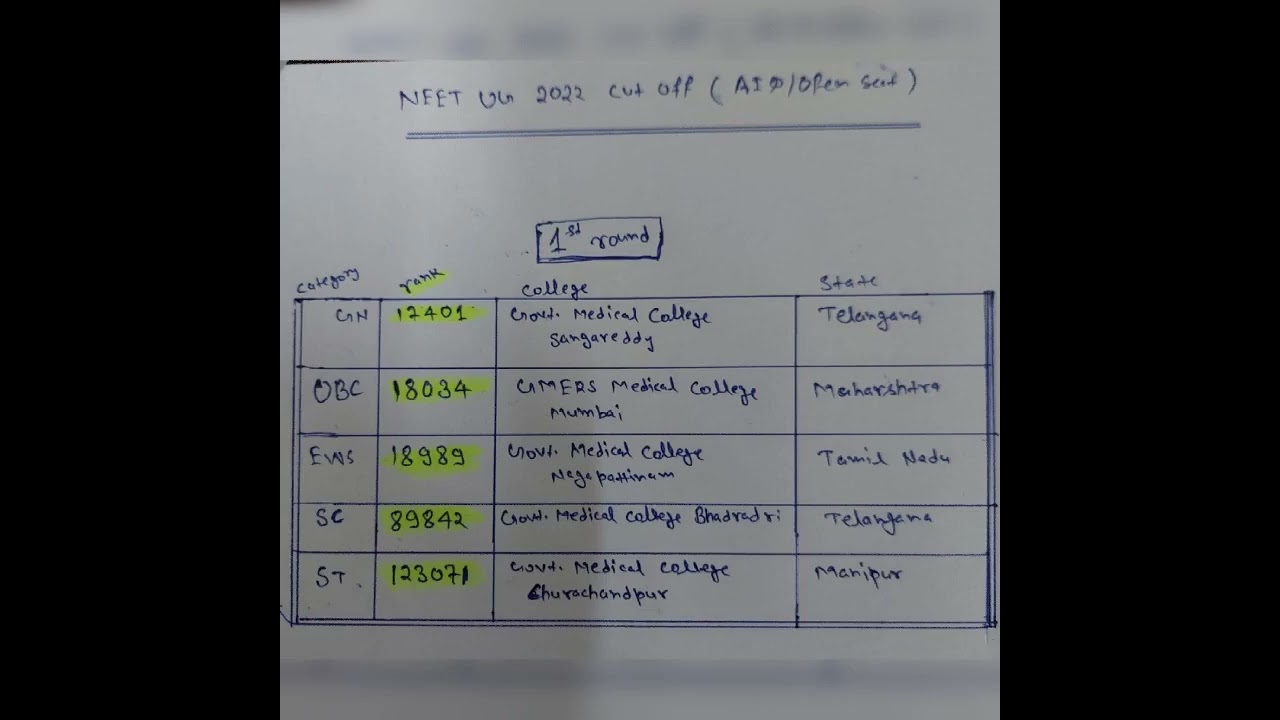 NEET UG 2022 cut off (AIQ/Open seat)
1st round
category rank college state
GN 12401 Govt. Medical College Telangana
Sangareddy
OBC 18034 GMERS Medical College Maharshtra
Mumbai
EWS 18989 Govt. Medical College Tamil Nadu
Nagapattinam
SC 89842 Govt. Medical College Bhadradri Telangana
ST. 123071 Govt. Medical College Manipur
Churachandpur